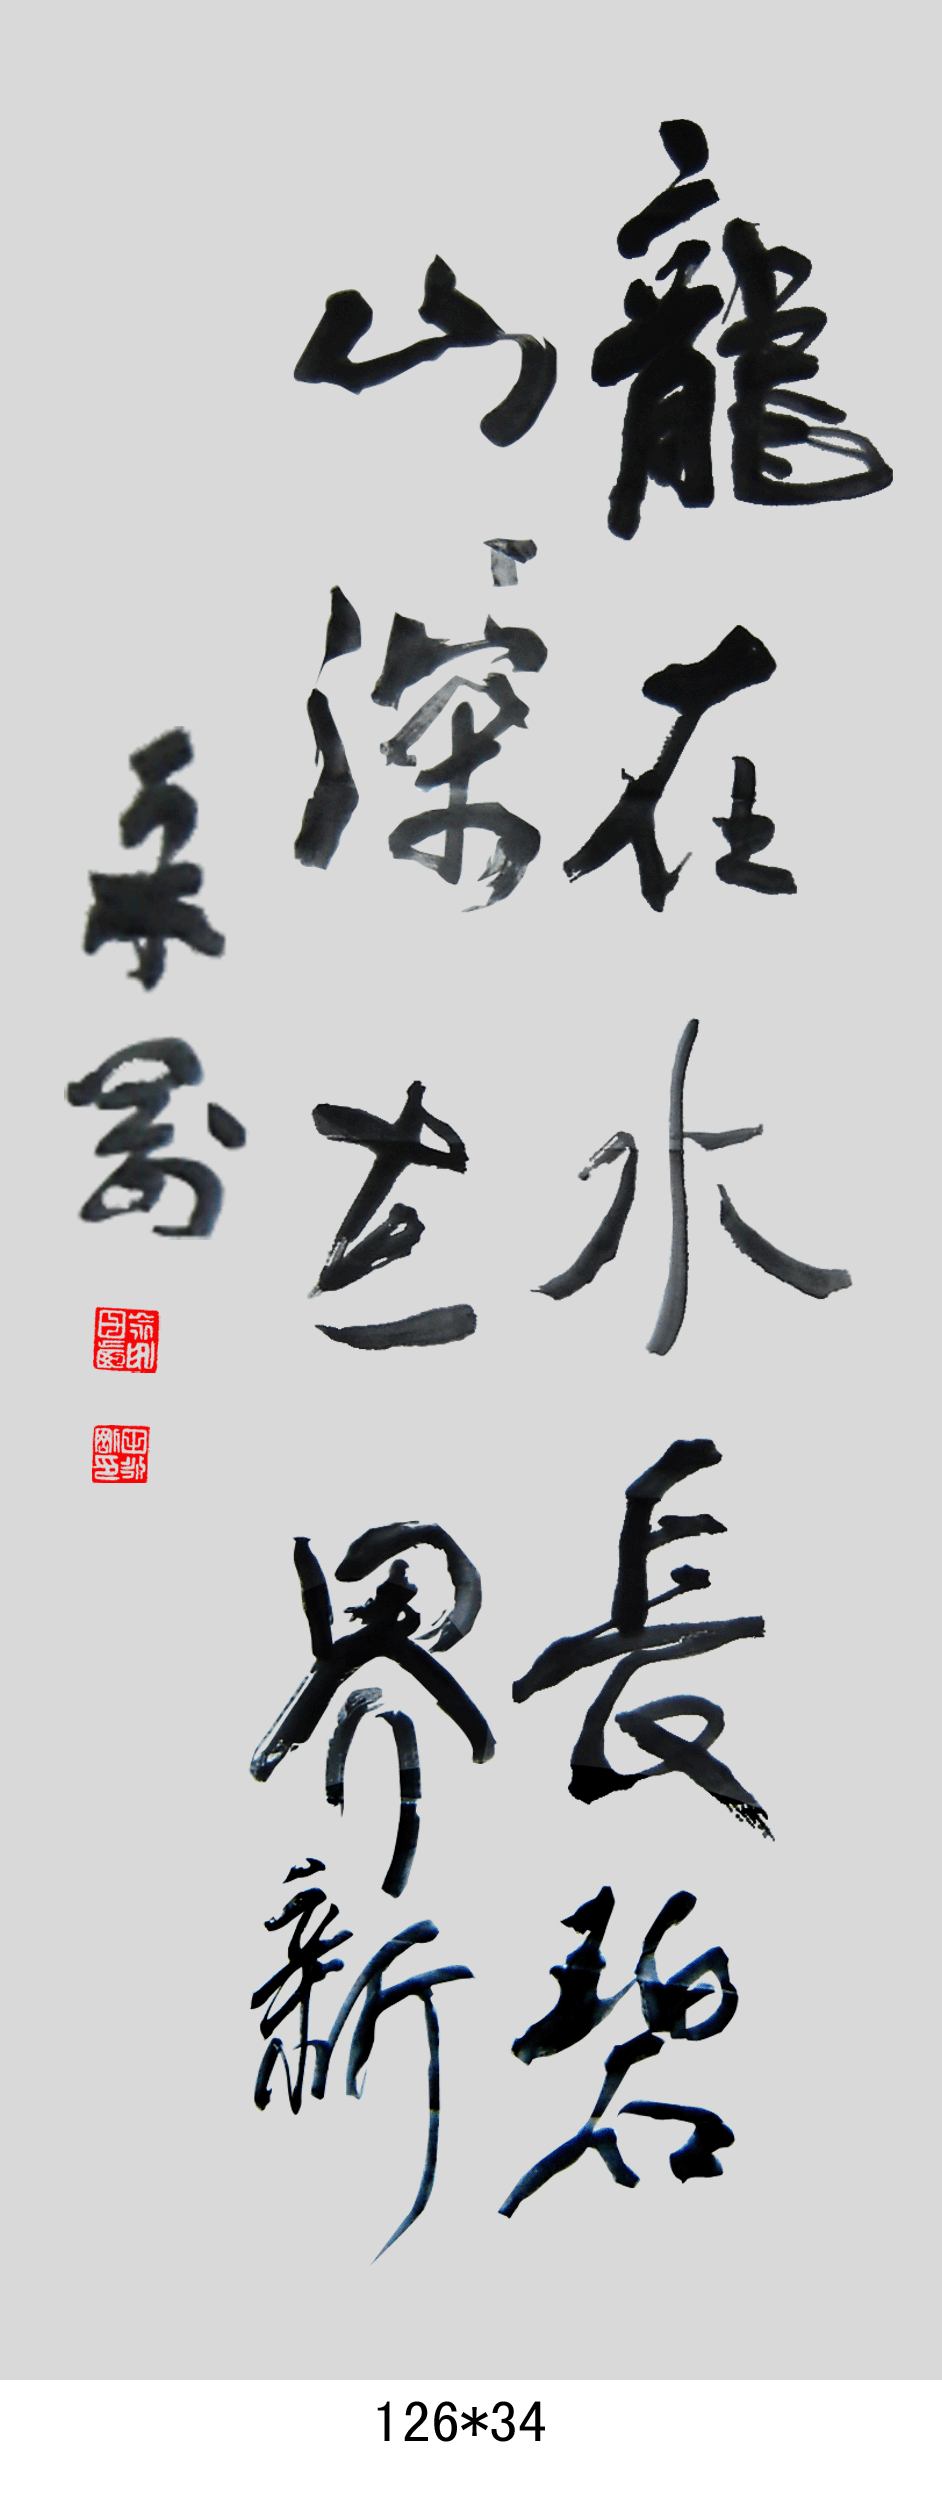 龍在水長碧
山深世界新
126*34